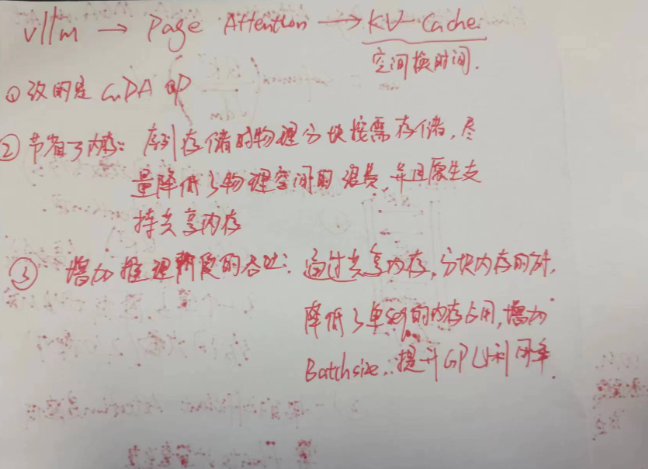 vllm → Page Attention → KV-Cache.
空间换时间.
① 改的是 CUDA OP
② 节省了内存: 序列存储的物理分块按需存储, 尽
量降低了物理空间的浪费, 并且原生支
持共享内存
③ 增加推理阶段的吞吐: 通过共享内存, 分块内存的方式,
降低了单的内存占用, 增加
Batchsize, 提升GPU利用率